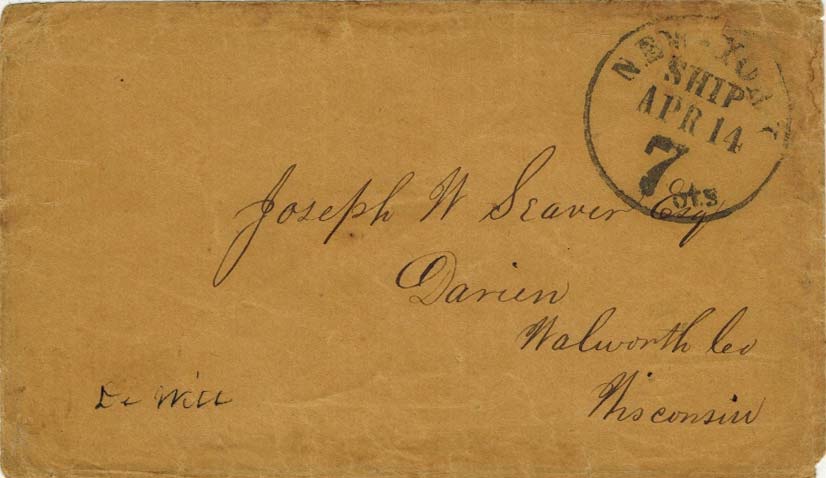 NEW-YORK
SHIP
APR 14
7 cts
Joseph W Seaver Esq
Darien
Walworth Co
Wisconsin
De Witt